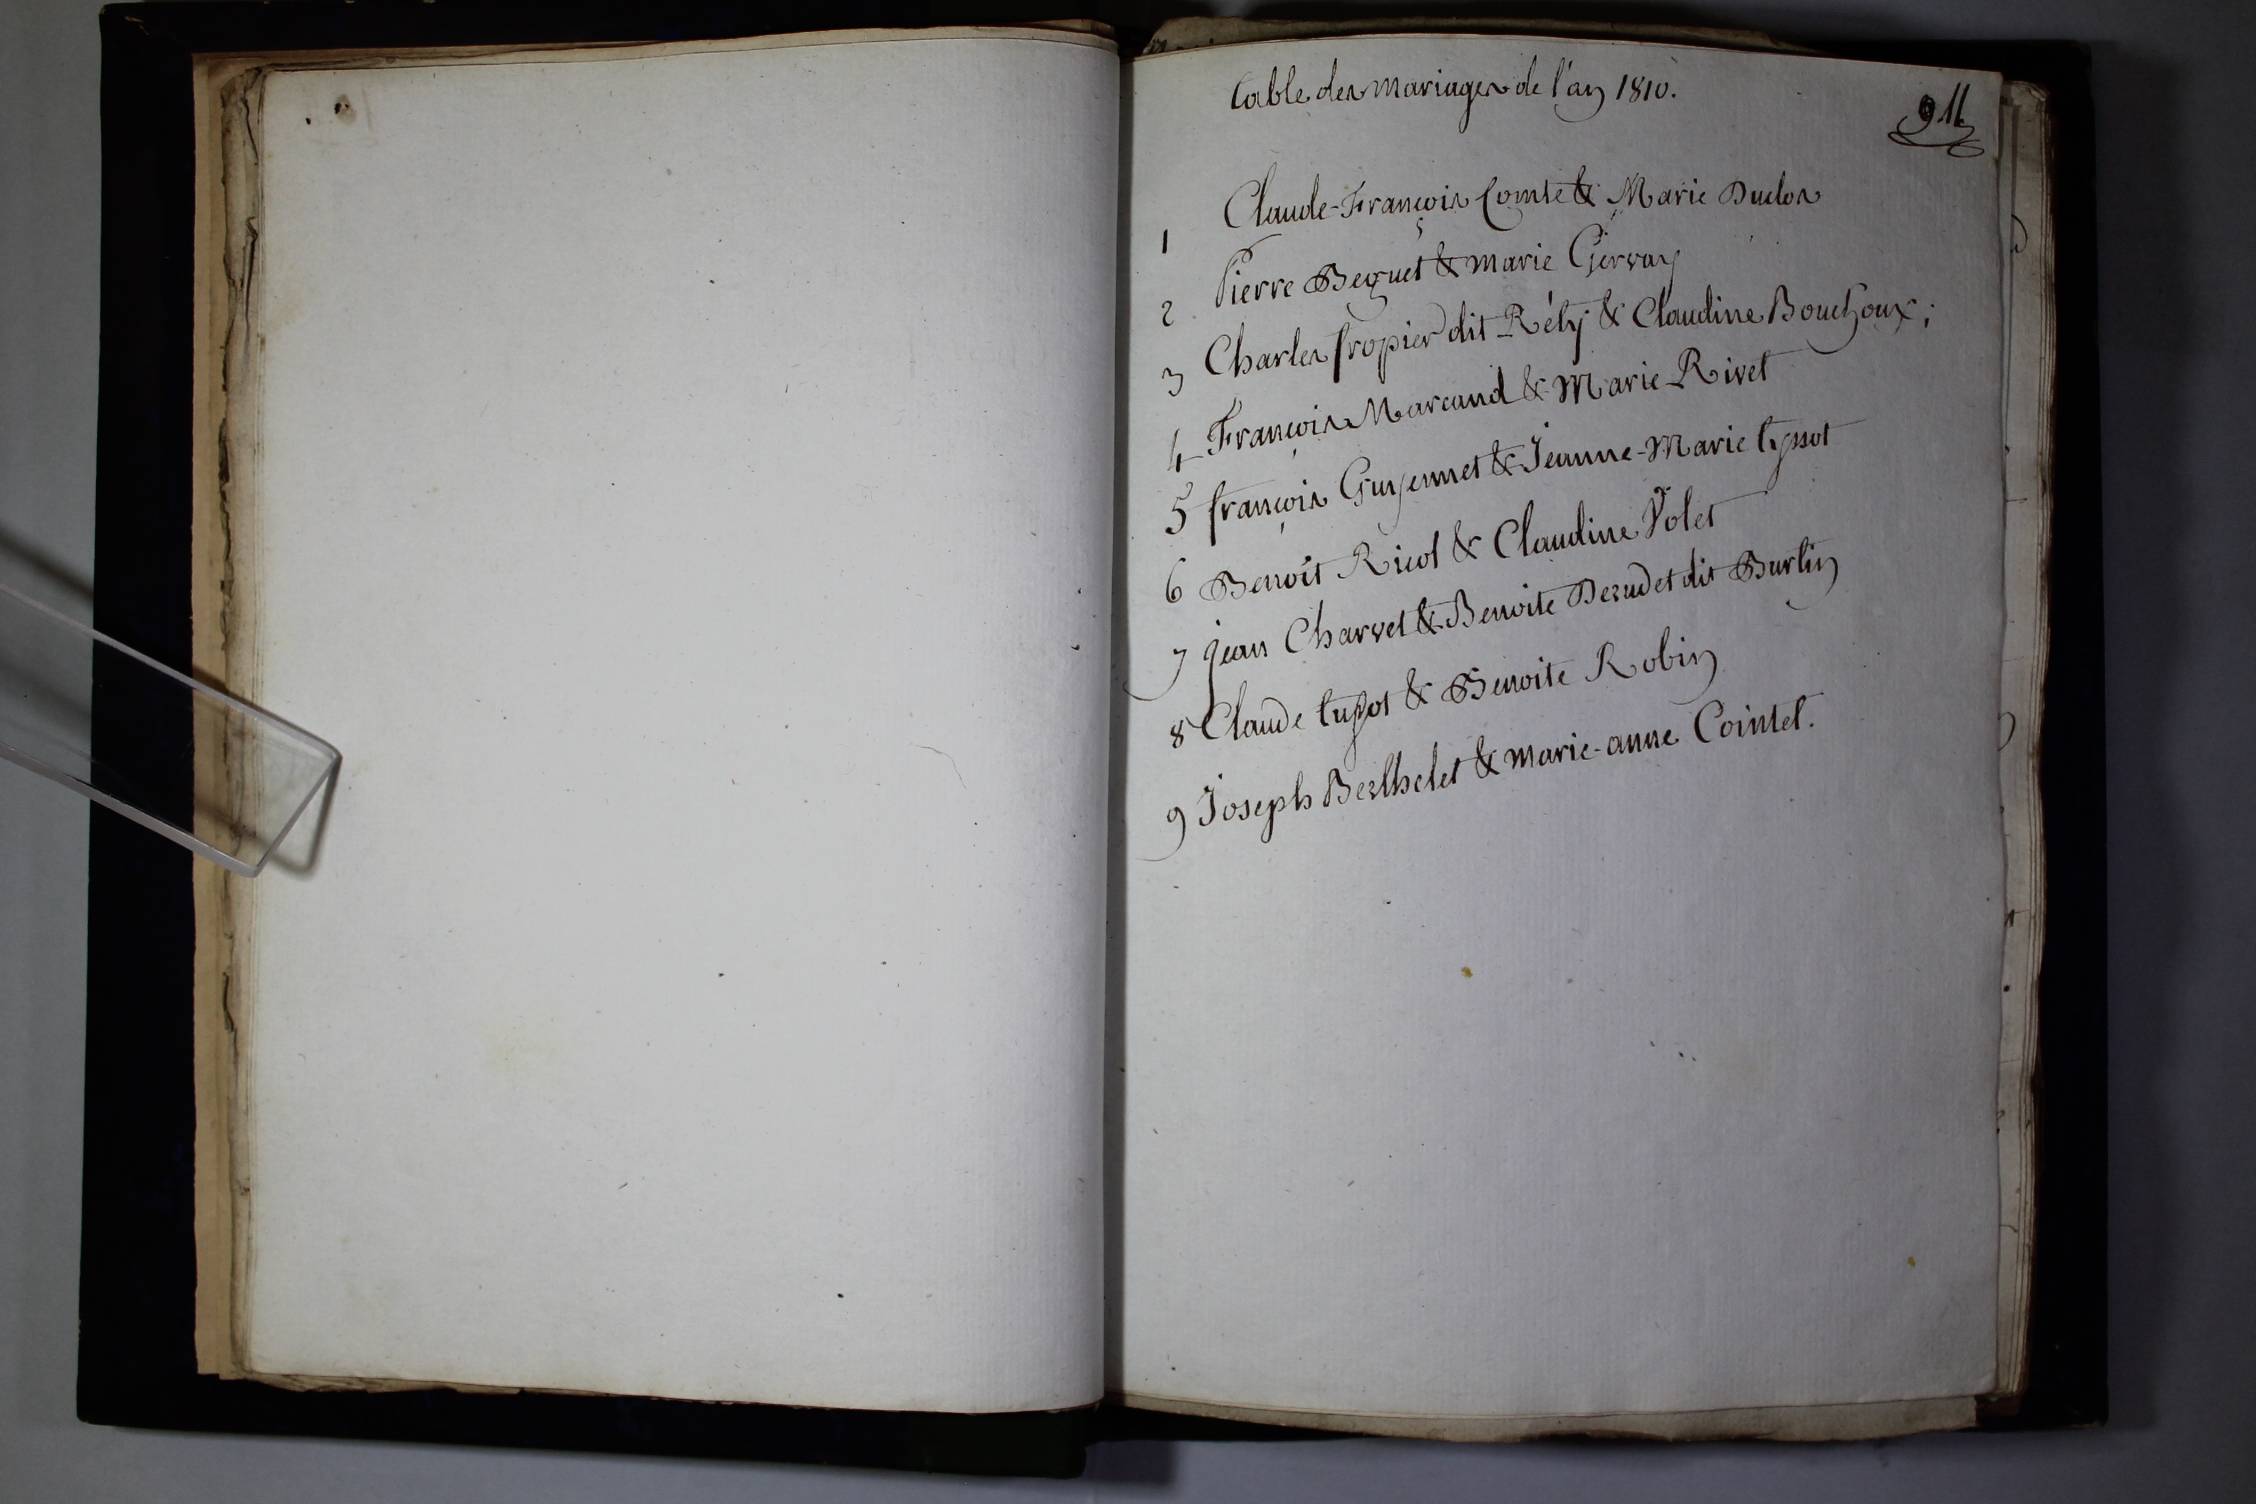 table des mariages de l'an 1810.
911
1 Claude-François Comte & Marie Duclos
2 Pierre Beguet & marie Gervay
3 Charles fropier dit Rély & Claudine Bouchoux;
4 François Marcand & Marie Rivet
5 françois Guyennet & Jeanne-Marie tyssot
6 Benoit Ricol & Claudine Volet
7 jean Charvet & Benoite Dezudet dit Burlin
8 Claude & Benoite Robin
9 Joseph Berthelet & marie-anne Cointet.